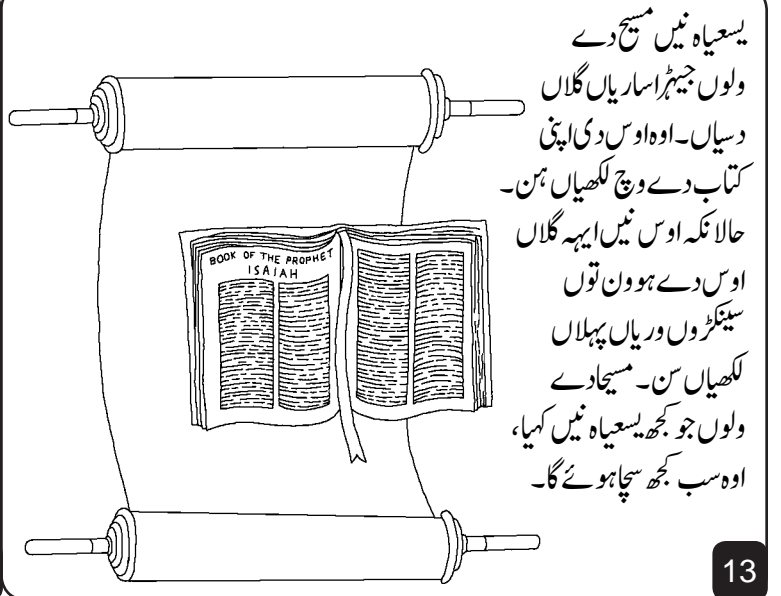 یسعیاہ نیں مسیح دے
ولوں جیہڑا ساریاں گلاں
دسیاں۔ اوہ اوس دی اپنی
کتاب دے وچ لکھیاں ہن۔
حالانکہ اوس نیں ایہہ گلاں
اوس دے ہوون توں
سینکڑوں وریاں پہلاں
لکھیاں سن۔ مسیحا دے
ولوں جو کجھ یسعیاہ نیں کہیا،
اوہ سب کجھ سچا ہوئے گا۔
BOOK OF THE PROPHET
ISAIAH
13